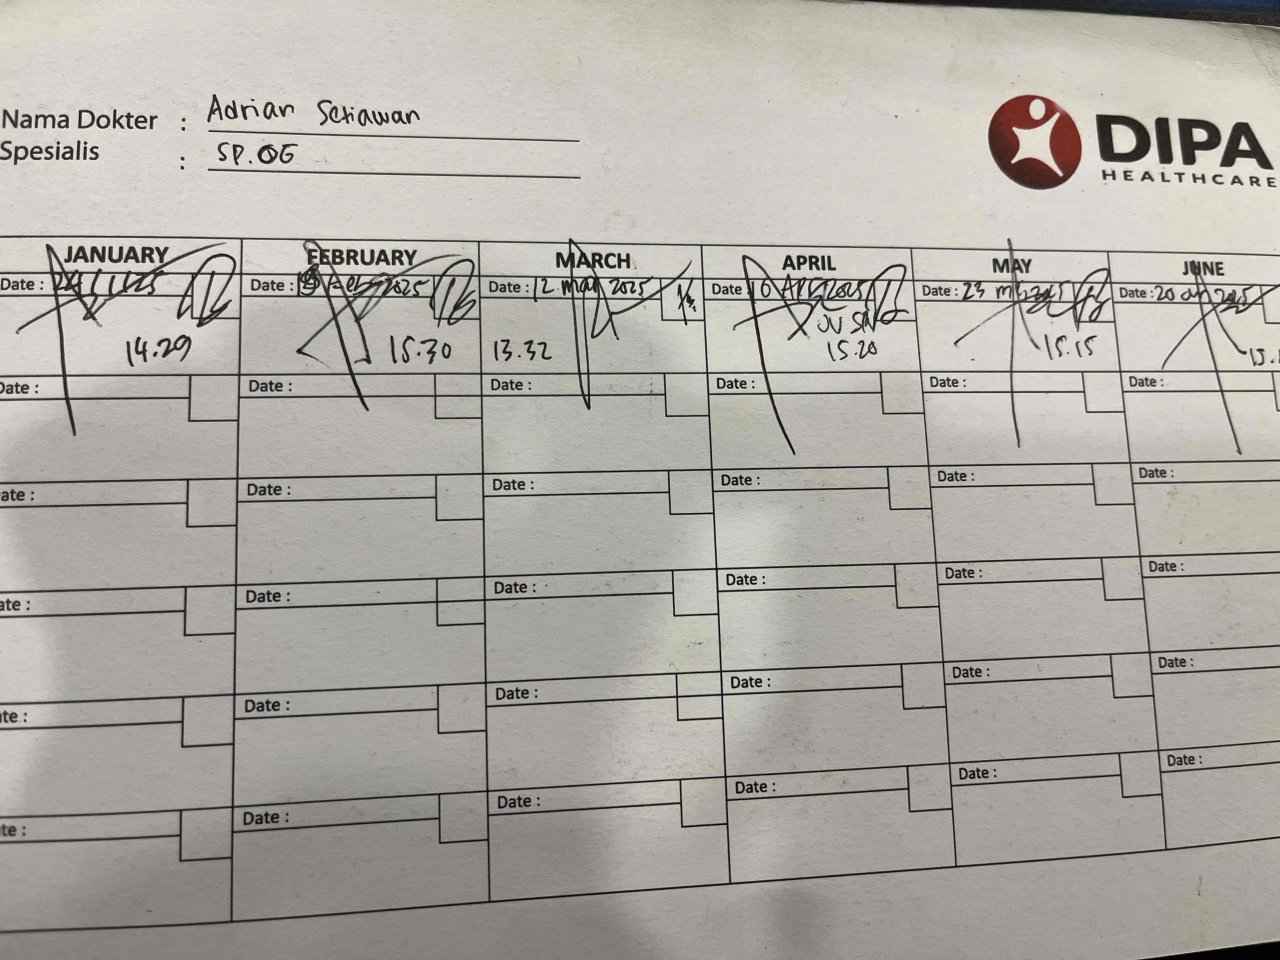 Nama Dokter : Adrian Setiawan
Spesialis : SP.OG
DIPA
HEALTHCARE
JANUARY FEBRUARY MARCH APRIL MAY JUNE
Date : 24/1/25 Date : Feb 2025 Date : 12 Mar 2025 Date 10 Apr 2025 Date : 23 2025 Date : 20 2025
14.29 15.30 13.32 15.20 15.15
Date : Date : Date : Date : Date : Date :
ate : Date : Date : Date : Date : Date :
ate : Date : Date : Date : Date : Date :
te : Date : Date : Date : Date : Date :
te : Date : Date : Date : Date : Date :